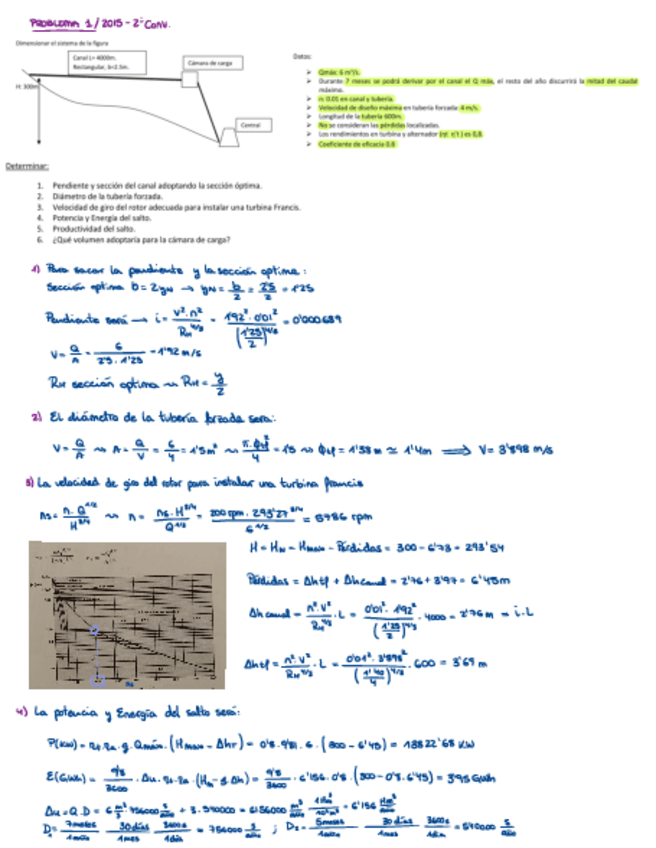 PROBLEMA 1 / 2015 - 2ª Conv.
Dimensionar el sistema de la figura
Canal L= 4000m.
Rectangular, b=2.5m.
Cámara de carga
H: 300m
Central
Datos:
➤ Qmáx: 6 m³/s.
➤ Durante 7 meses se podrá derivar por el canal el Q máx, el resto del año discurrirá la mitad del caudal
máximo.
➤ n: 0.01 en canal y tubería.
➤ Velocidad de diseño máxima en tubería forzada: 4 m/s.
➤ Longitud de la tubería 600m.
➤ No se consideran las pérdidas localizadas.
➤ Los rendimientos en turbina y alternador (ηt · η't ) es 0,8.
➤ Coeficiente de eficacia 0.8
Determinar:
1. Pendiente y sección del canal adoptando la sección óptima.
2. Diámetro de la tubería forzada.
3. Velocidad de giro del rotor adecuada para instalar una turbina Francis.
4. Potencia y Energía del salto.
5. Productividad del salto.
6. ¿Qué volumen adoptaría para la cámara de carga?
1) Para sacar la pendiente y la sección optima:
Sección optima b = 2yN → yN = b/2 = 2'5/2 = 1'25
Pendiente será → i = v²·n²/RH^4/3 = 1'92²·0'01²/(1'25/2)^4/3 = 0'000689
V = Q/A = 6/2'5·1'25 = 1'92 m/s
RH sección optima ⇝ RH = y/2
2) El diámetro de la tubería forzada será:
V = Q/A ⇝ A = Q/V = 6/4 = 1'5 m² ⇝ π·ϕtf²/4 = 1'5 ⇝ ϕtf = 1'38 m ≃ 1'4m ⟹ V = 3'898 m/s
3) La velocidad de giro del rotor para instalar una turbina francis
ns = n·Q^1/2/H^5/4 ⇝ n = ns·H^5/4/Q^1/2 = 200 rpm · 293'27^5/4/6^1/2 = 5986 rpm
H = HN = Hmax - Pérdidas = 300 - 6'73 = 293'54
Pérdidas = Δhtf + Δhcanal = 2'76 + 3'97 = 6'45m
Δh canal = n²·v²/RH^4/3 · L = 0'01²·1'92²/(1'25/2)^4/3 · 4000 = 2'76 m = i·L
Δhtf = n²·v²/RH^4/3 · L = 0'01²·3'898²/(1'40/4)^4/3 · 600 = 3'69 m
4) La potencia y Energía del salto será:
P(KW) = ηt·ηa·g·Qmáx·(Hmax - Δhr) = 0'8·9'81·6·(300 - 6'45) = 13822'68 KW
E(GWh) = 9'8/3600 · Δu·ηt·ηa·(Hm - g·Δh) = 9'8/3600 · 6'156·0'8·(300 - 0'8·6'45) = 3'95 GWh
Δu = Q·D = 6 m³/s · 756000 s/año + 3·540000 = 6156000 m³/año · 1Hm³/10⁶m³ = 6'156 Hm³/año
D1 = 7meses/1año · 30días/1mes · 3600s/1día = 756000 s/año ; D2 = 5meses/1año · 30días/1mes · 3600s/1día = 540000 s/año